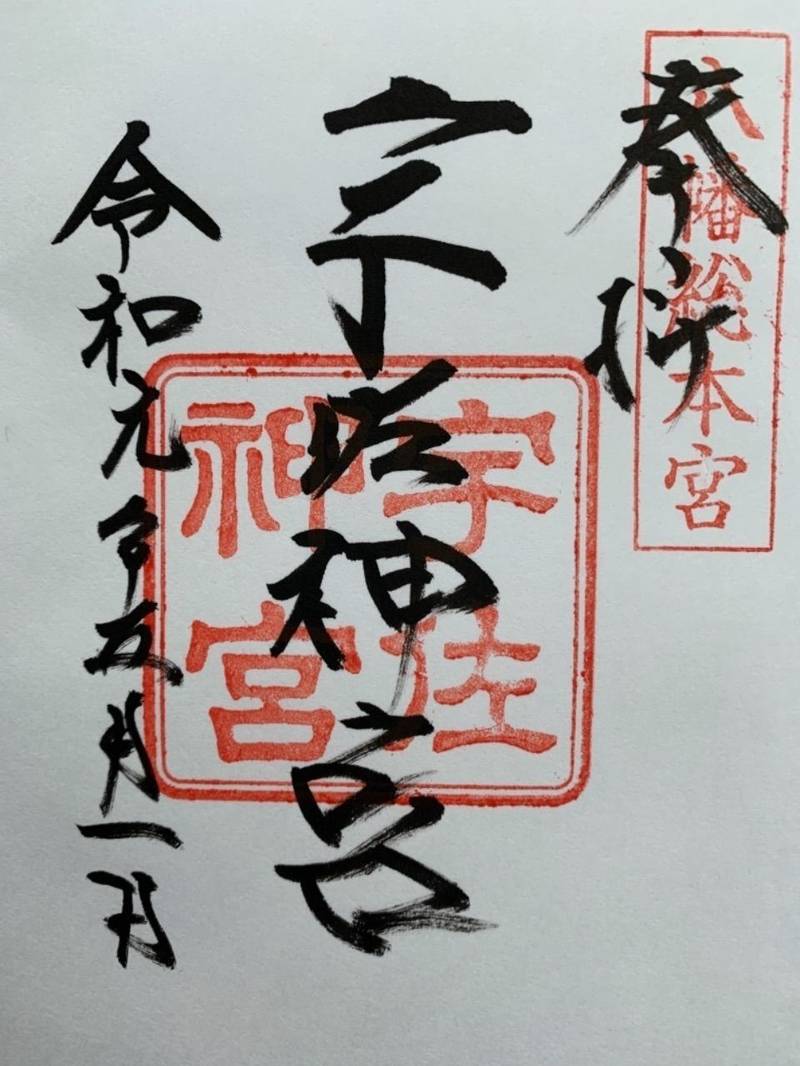 奉拝
八幡総本宮
宇佐神宮
宇佐
神宮
令和元年五月一日